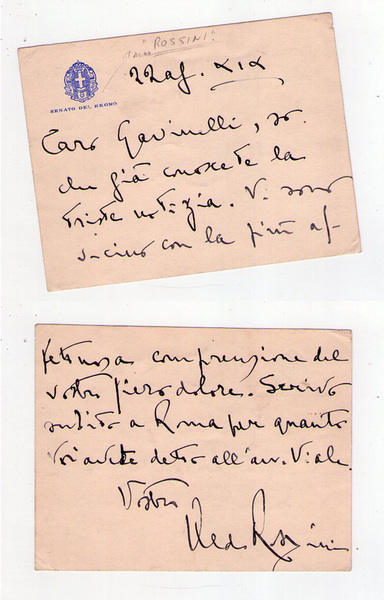 "ROSSINI"
SENATO DEL REGNO
22 ag. XIX
Caro Gavinelli, so
che già conoscete la
triste notizia. Vi sono
vicino con la più af-
fettuosa comprensione del
vostro fiero dolore. Scrivo
subito a Roma per quanto
voi avete detto all'avv. Viale.
Vostro
Aldo Rossini